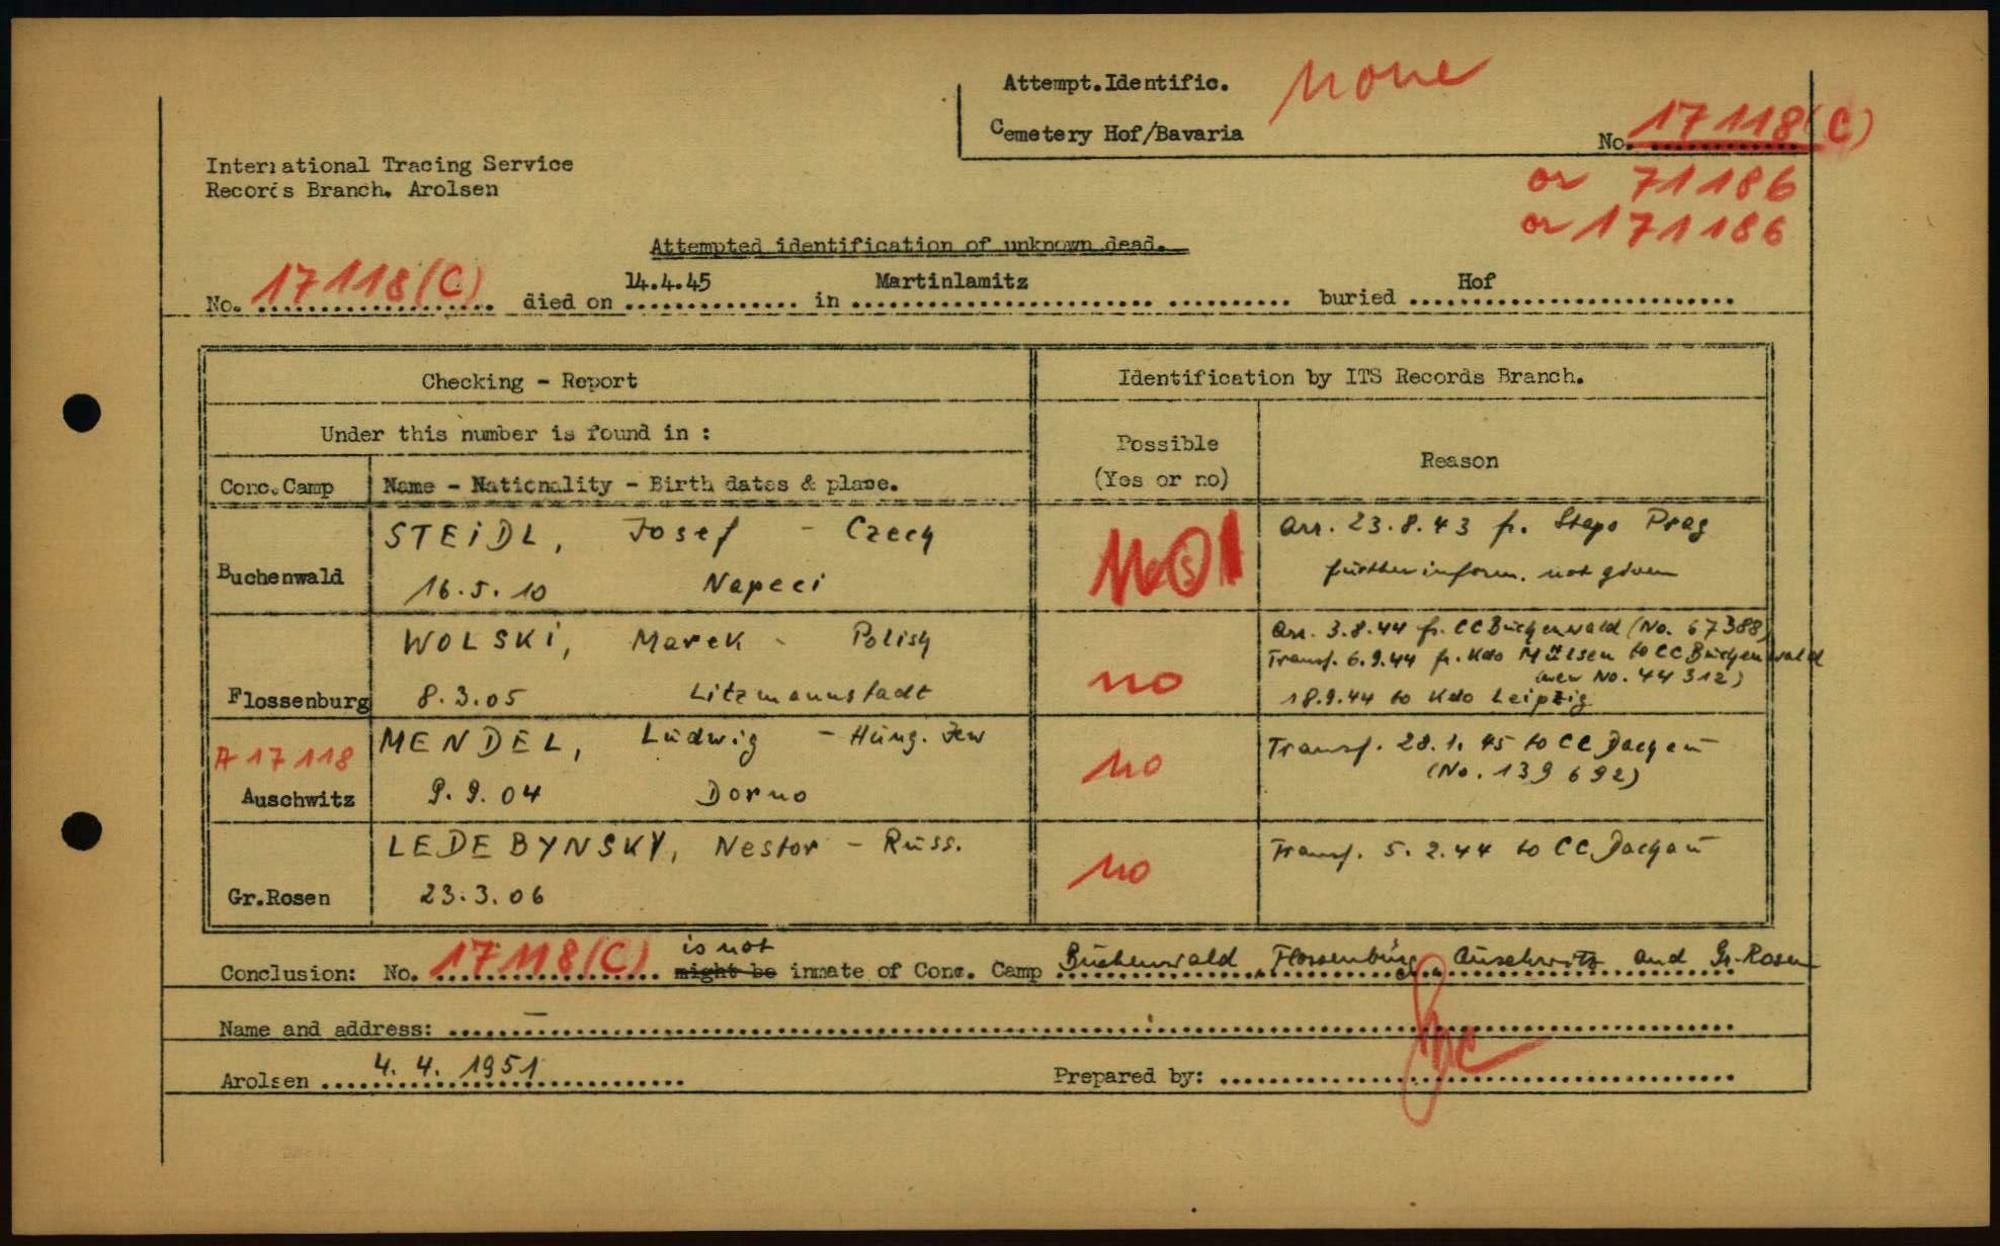 Attempt.Identific. None
Cemetery Hof/Bavaria
No. 17118(C)
or 71186
or 171186
International Tracing Service
Records Branch. Arolsen
Attempted identification of unknown dead.
No. 17118(C) died on 14.4.45 in Martinlamitz buried Hof
Checking - Report
Identification by ITS Records Branch.
Under this number is found in :
Possible
(Yes or no)
Reason
Conc.Camp
Name - Nationality - Birth dates & place.
Buchenwald
STEiDL, Josef - Czech
16.5.10 Napeci
No
Arr. 23.8.43 fr. Stapo Prag
further inform. not given
Flossenburg
WOLSKi, Marek - Polish
8.3.05 Litzmannstadt
no
Arr. 3.8.44 fr. CC Buchenwald (No. 67388)
Transf. 6.9.44 fr. Kdo Mülsen to CC Buchenwald
(new No. 44312)
18.9.44 to Kdo Leipzig
A 17118
Auschwitz
MENDEL, Ludwig - Hung. Jew
9.9.04 Dorno
no
Transf. 28.1.45 to CC Dachau
(No. 139692)
Gr.Rosen
LEDEBYNSKY, Nestor - Russ.
23.3.06
no
Transf. 5.2.44 to CC Dachau
is not
Conclusion: No. 17118(C) might be inmate of Conc. Camp Buchenwald, Flossenbürg, Auschwitz and Gr.-Rosen
Name and address: —
Arolsen 4.4.1951
Prepared by: